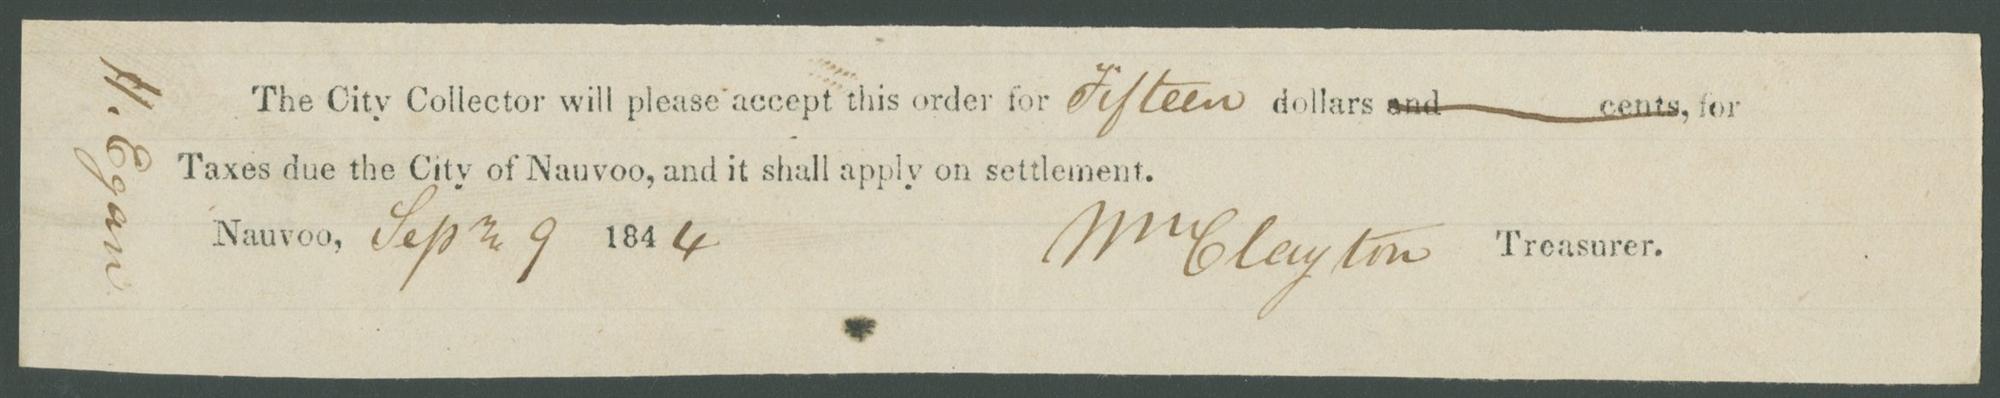 H. Egan
The City Collector will please accept this order for Fifteen dollars and cents, for
Taxes due the City of Nauvoo, and it shall apply on settlement.
Nauvoo, Sepr 9 1844 Wm Clayton Treasurer.